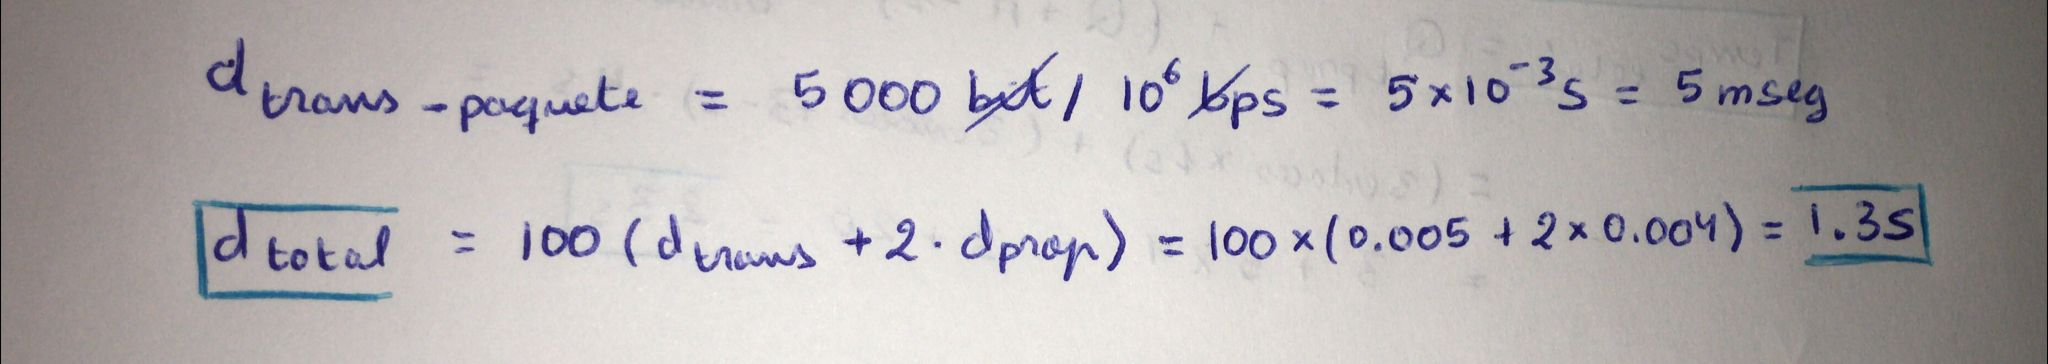 d trans-paquete = 5000 bit / 10⁶ bps = 5x10⁻³s = 5 mseg
d total = 100 (d trans + 2 · dprop) = 100 x (0.005 + 2 x 0.004) = 1.3s